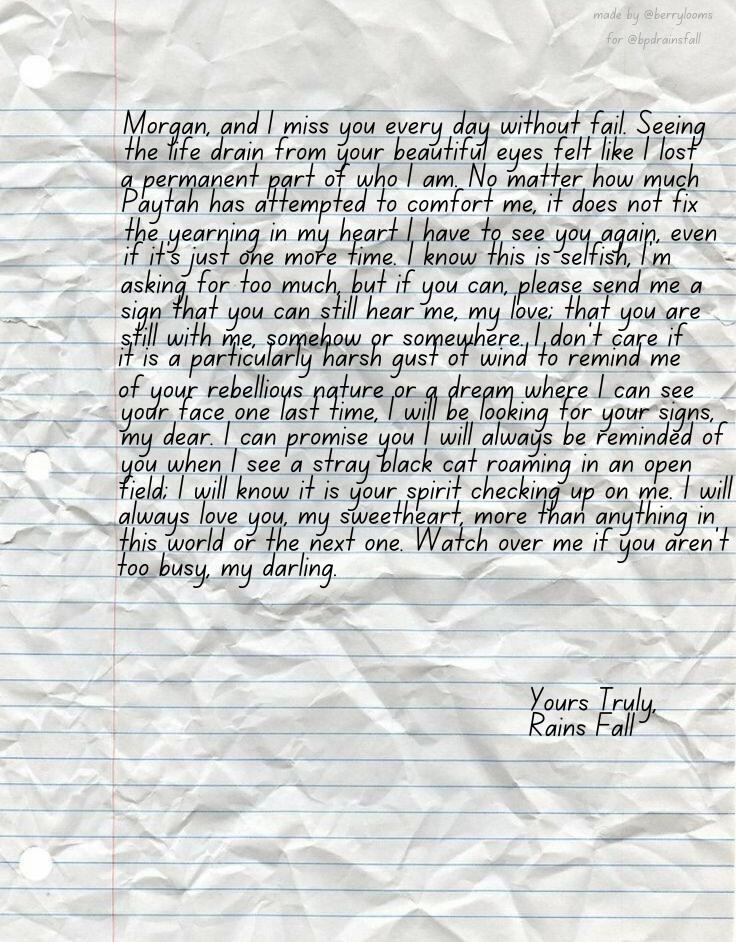 made by @berrylooms
for @bpdrainsfall
Morgan, and I miss you every day without fail. Seeing
the life drain from your beautiful eyes felt like I lost
a permanent part of who I am. No matter how much
Paytah has attempted to comfort me, it does not fix
the yearning in my heart I have to see you again, even
if it's just one more time. I know this is selfish, I'm
asking for too much, but if you can, please send me a
sign that you can still hear me, my love; that you are
still with me, somehow or somewhere. I don't care if
it is a particularly harsh gust of wind to remind me
of your rebellious nature or a dream where I can see
your face one last time, I will be looking for your signs,
my dear. I can promise you I will always be reminded of
you when I see a stray black cat roaming in an open
field; I will know it is your spirit checking up on me. I will
always love you, my sweetheart, more than anything in
this world or the next one. Watch over me if you aren't
too busy, my darling.
Yours Truly,
Rains Fall